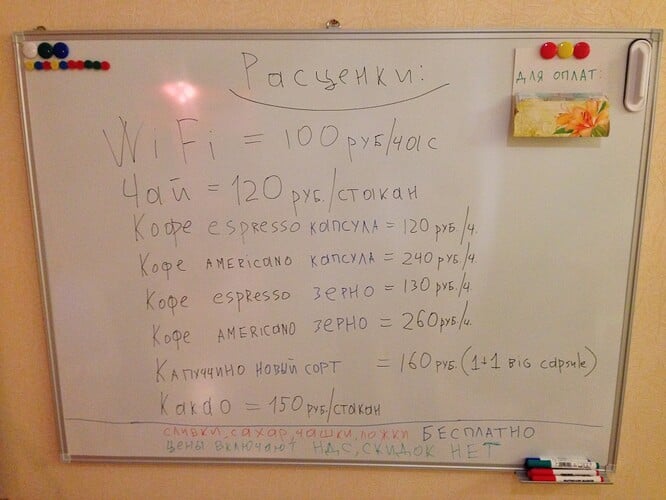 Расценки:
ДЛЯ ОПЛАТ:
WiFi = 100 РУБ/ЧАС
Чай = 120 РУБ./СТАКАН
Кофе espresso КАПСУЛА = 120 РУБ./Ч.
Кофе AMERICANO КАПСУЛА = 240 РУБ./Ч.
Кофе espresso ЗЕРНО = 130 РУБ./Ч.
Кофе AMERICANO ЗЕРНО = 260 РУБ./Ч.
КАПУЧЧИНО НОВЫЙ СОРТ = 160 РУБ. (1+1 BIG capsule)
КАКАО = 150 РУБ/СТАКАН
СЛИВКИ, САХАР, ЧАШКИ, ЛОЖКИ БЕСПЛАТНО
ЦЕНЫ ВКЛЮЧАЮТ НДС, СКИДОК НЕТ